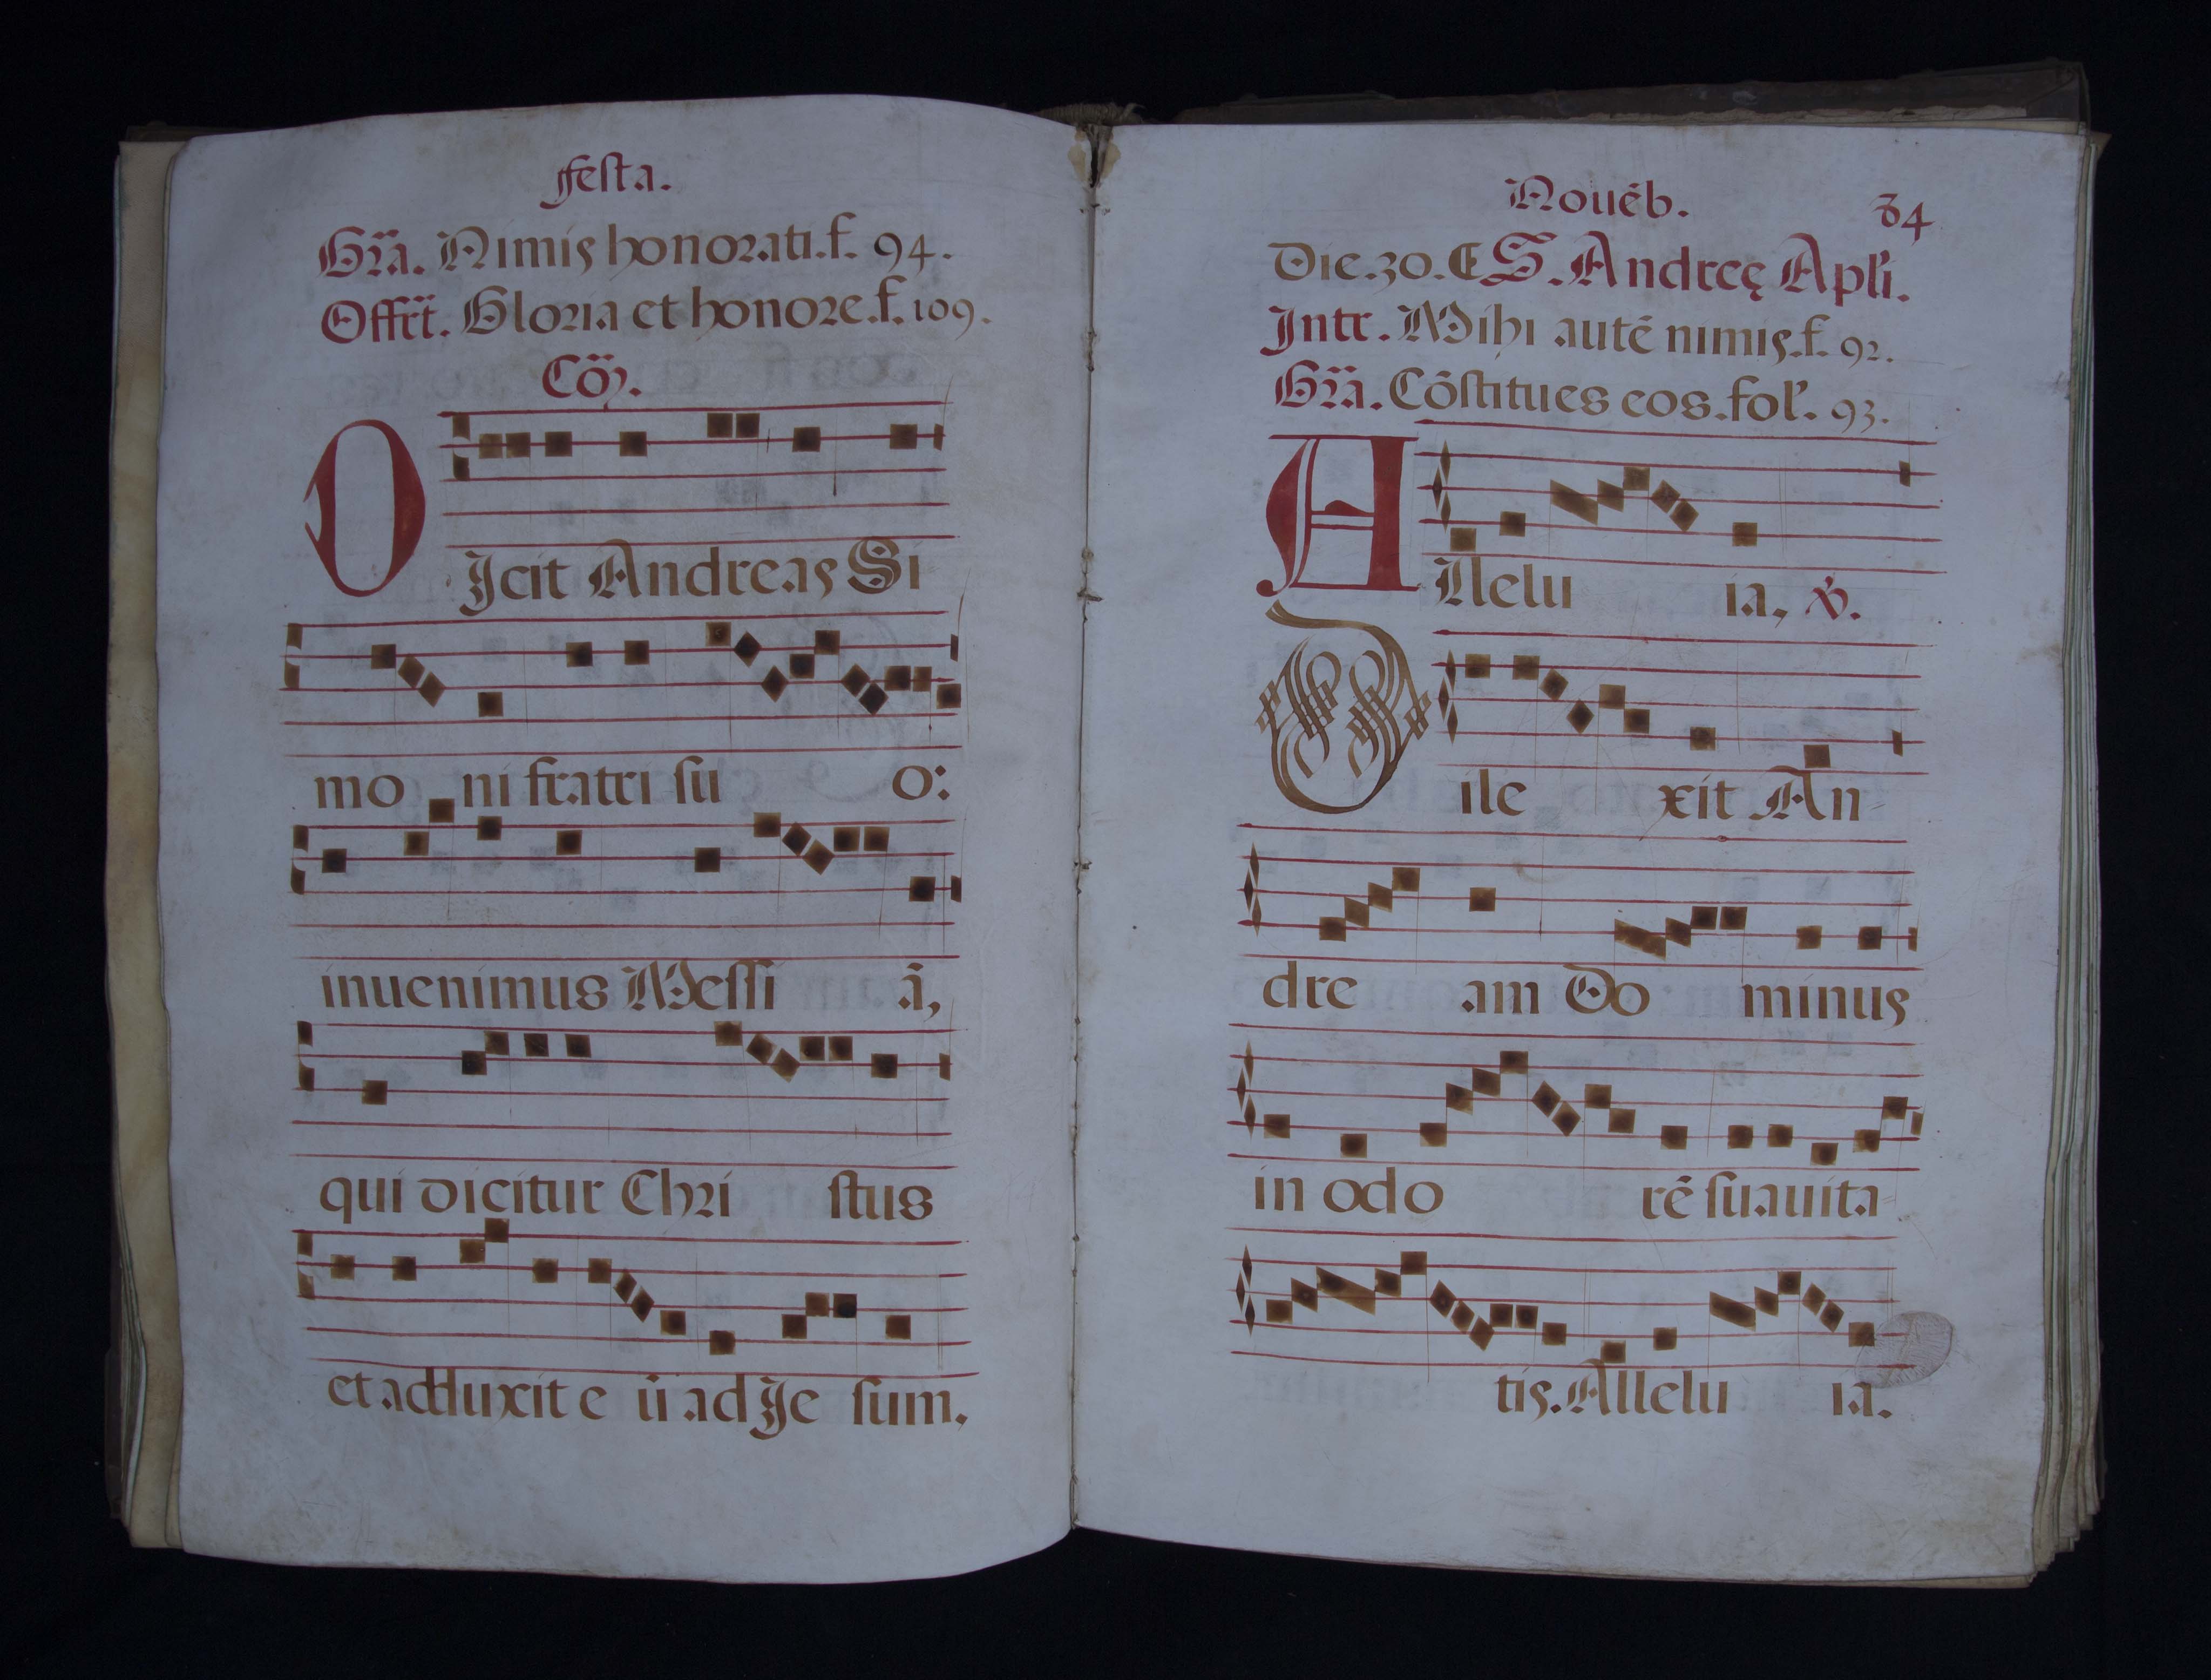 Festa.
Gra᷈. Nimis honorati. f. 94.
Offrt᷈. Gloria et honore. f. 109.
Cō.
DJcit Andreas Si
mo ni fratri su o:
inuenimus Messi ā,
qui dicitur Chri stus
et adduxit e ū ad Je sum,
Nouēb. 84
Die. 30. S. Andreę Apl'i.
Intr. Mihi autē nimis. f. 92.
Gra᷈. Cōstitues eos. fol'. 93.
Allelu ia, ℣.
Dile xit An-
dre am Do minus
in odo rē suauita-
tis. Allelu ia.